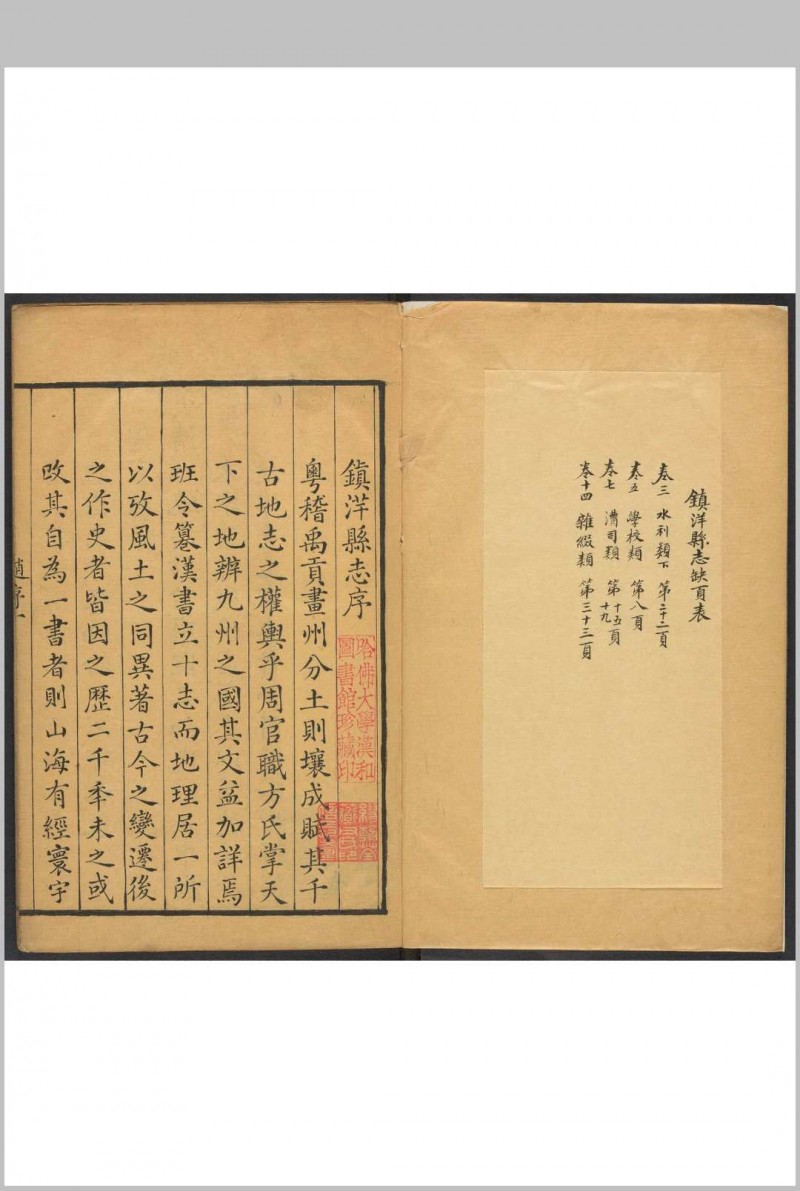 鎮洋縣志缺頁表
卷三 水利類下 第二十二頁
卷五 學校類 第八頁
卷七 漕司類 第十五頁 十九
卷十四 雜綴類 第三十三頁
鎮洋縣志序
粤稽禹貢畫州分土則壤成賦其千
古地志之權輿乎周官職方氏掌天
下之地辨九州之國其文益加詳焉
班令纂漢書立十志而地理居一所
以攷風土之同異著古今之變遷後
之作史者皆因之歷二千季未之或
改其自為一書者則山海有經寰宇
趙序 一
哈佛大學漢和
圖書館珍藏印